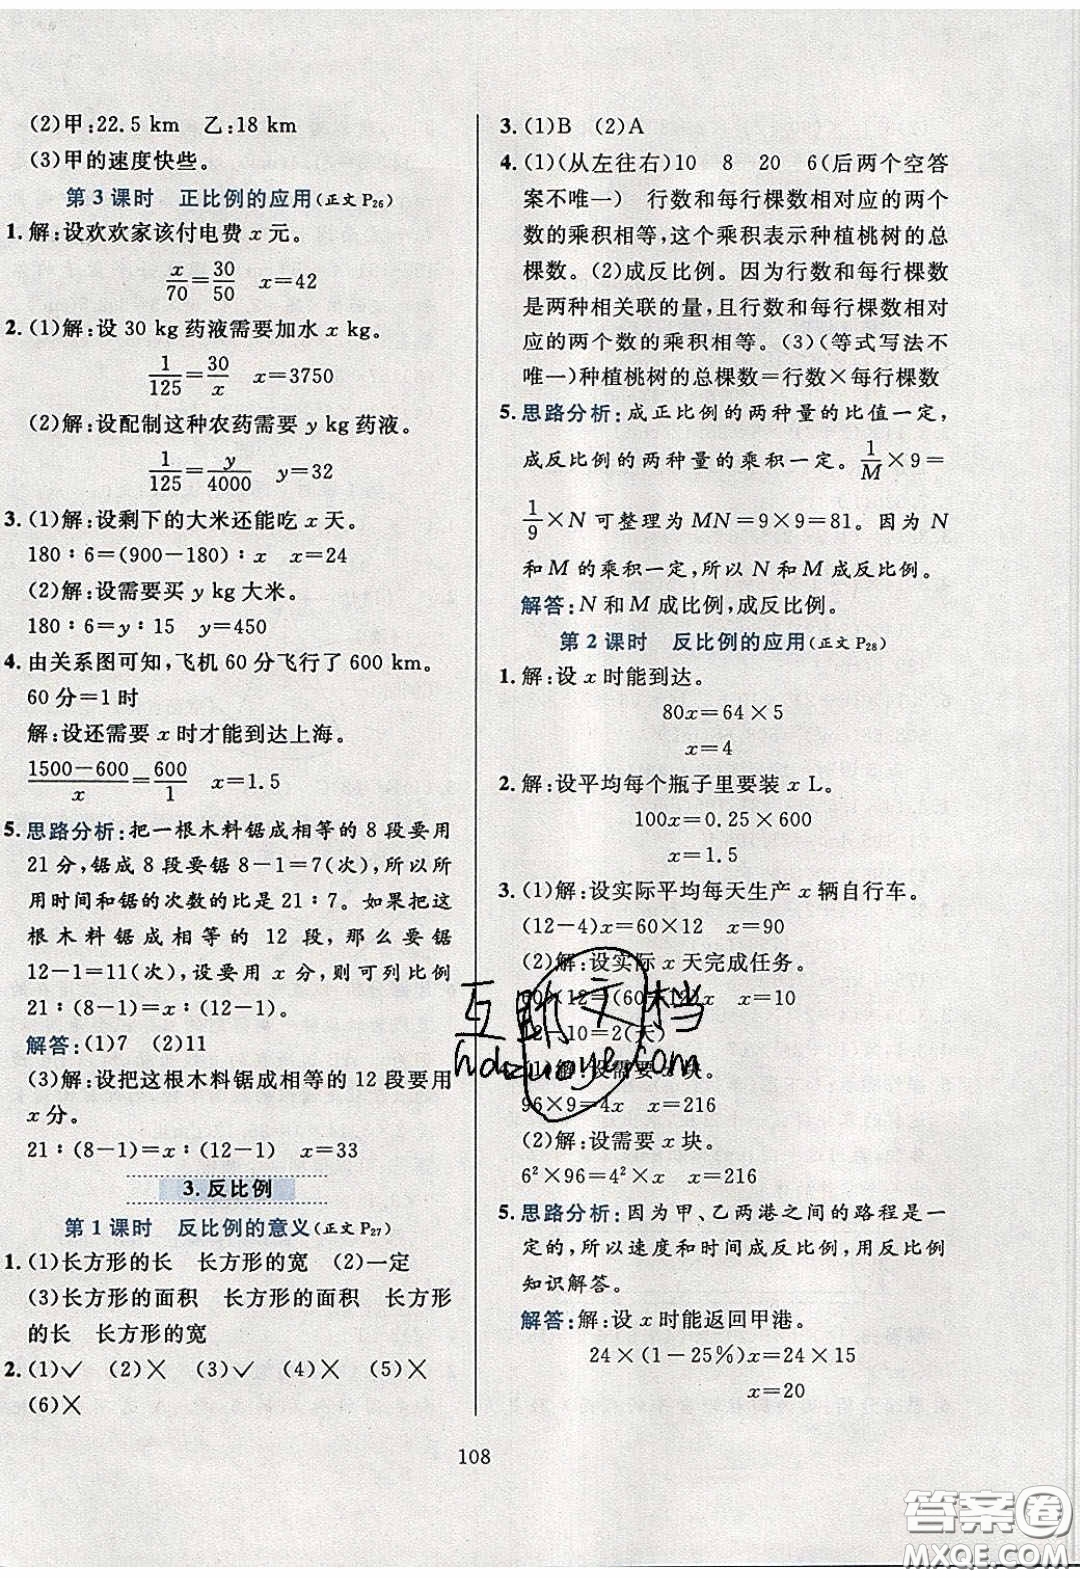 (2)甲:22.5 km　乙:18 km
(3)甲的速度快些。
第3课时　正比例的应用(正文P26)
1.解:设欢欢家该付电费x元。
x/70=30/50　x=42
2.(1)解:设30 kg药液需要加水x kg。
1/125=30/x　x=3750
(2)解:设配制这种农药需要y kg药液。
1/125=y/4000　y=32
3.(1)解:设剩下的大米还能吃x天。
180∶6=(900-180)∶x　x=24
(2)解:设需要买y kg大米。
180∶6=y∶15　y=450
4.由关系图可知,飞机60分飞行了600 km。
60分=1时
解:设还需要x时才能到达上海。
1500-600/x=600/1　x=1.5
5.思路分析:把一根木料锯成相等的8段要用
21分,锯成8段要锯8-1=7(次),所以所
用时间和锯的次数的比是21∶7。如果把这
根木料锯成相等的12段,那么要锯
12-1=11(次),设要用x分,则可列比例
21∶(8-1)=x∶(12-1)。
解答:(1)7　(2)11
(3)解:设把这根木料锯成相等的12段要用
x分。
21∶(8-1)=x∶(12-1)　x=33
3.反比例
第1课时　反比例的意义(正文P27)
1.(1)长方形的长　长方形的宽　(2)一定
(3)长方形的面积　长方形的面积　长方形
的长　长方形的宽
2.(1)✓　(2)×　(3)✓　(4)×　(5)×
(6)×
3.(1)B　(2)A
4.(1)(从左往右)10　8　20　6(后两个空答
案不唯一)　行数和每行棵数相对应的两个
数的乘积相等,这个乘积表示种植桃树的总
棵数。(2)成反比例。因为行数和每行棵数
是两种相关联的量,且行数和每行棵数相对
应的两个数的乘积相等。(3)(等式写法不
唯一)种植桃树的总棵数=行数×每行棵数
5.思路分析:成正比例的两种量的比值一定,
成反比例的两种量的乘积一定。1/M×9=
1/9×N可整理为MN=9×9=81。因为N
和M的乘积一定,所以N和M成反比例。
解答:N和M成比例,成反比例。
第2课时　反比例的应用(正文P28)
1.解:设x时能到达。
80x=64×5
x=4
2.解:设平均每个瓶子里要装x L。
100x=0.25×600
x=1.5
3.(1)解:设实际平均每天生产x辆自行车。
(12-4)x=60×12　x=90
(2)解:设实际x天完成任务。
60×12=(60+12)x　x=10
12-10=2(天)
(1)解:设需要x块。
96×9=4x　x=216
(2)解:设需要x块。
6²×96=4²×x　x=216
5.思路分析:因为甲、乙两港之间的路程是一
定的,所以速度和时间成反比例,用反比例
知识解答。
解答:解:设x时能返回甲港。
24×(1-25%)x=24×15
x=20
108
互助文档
hdzuoye.com
答案圈
MXQE.COM